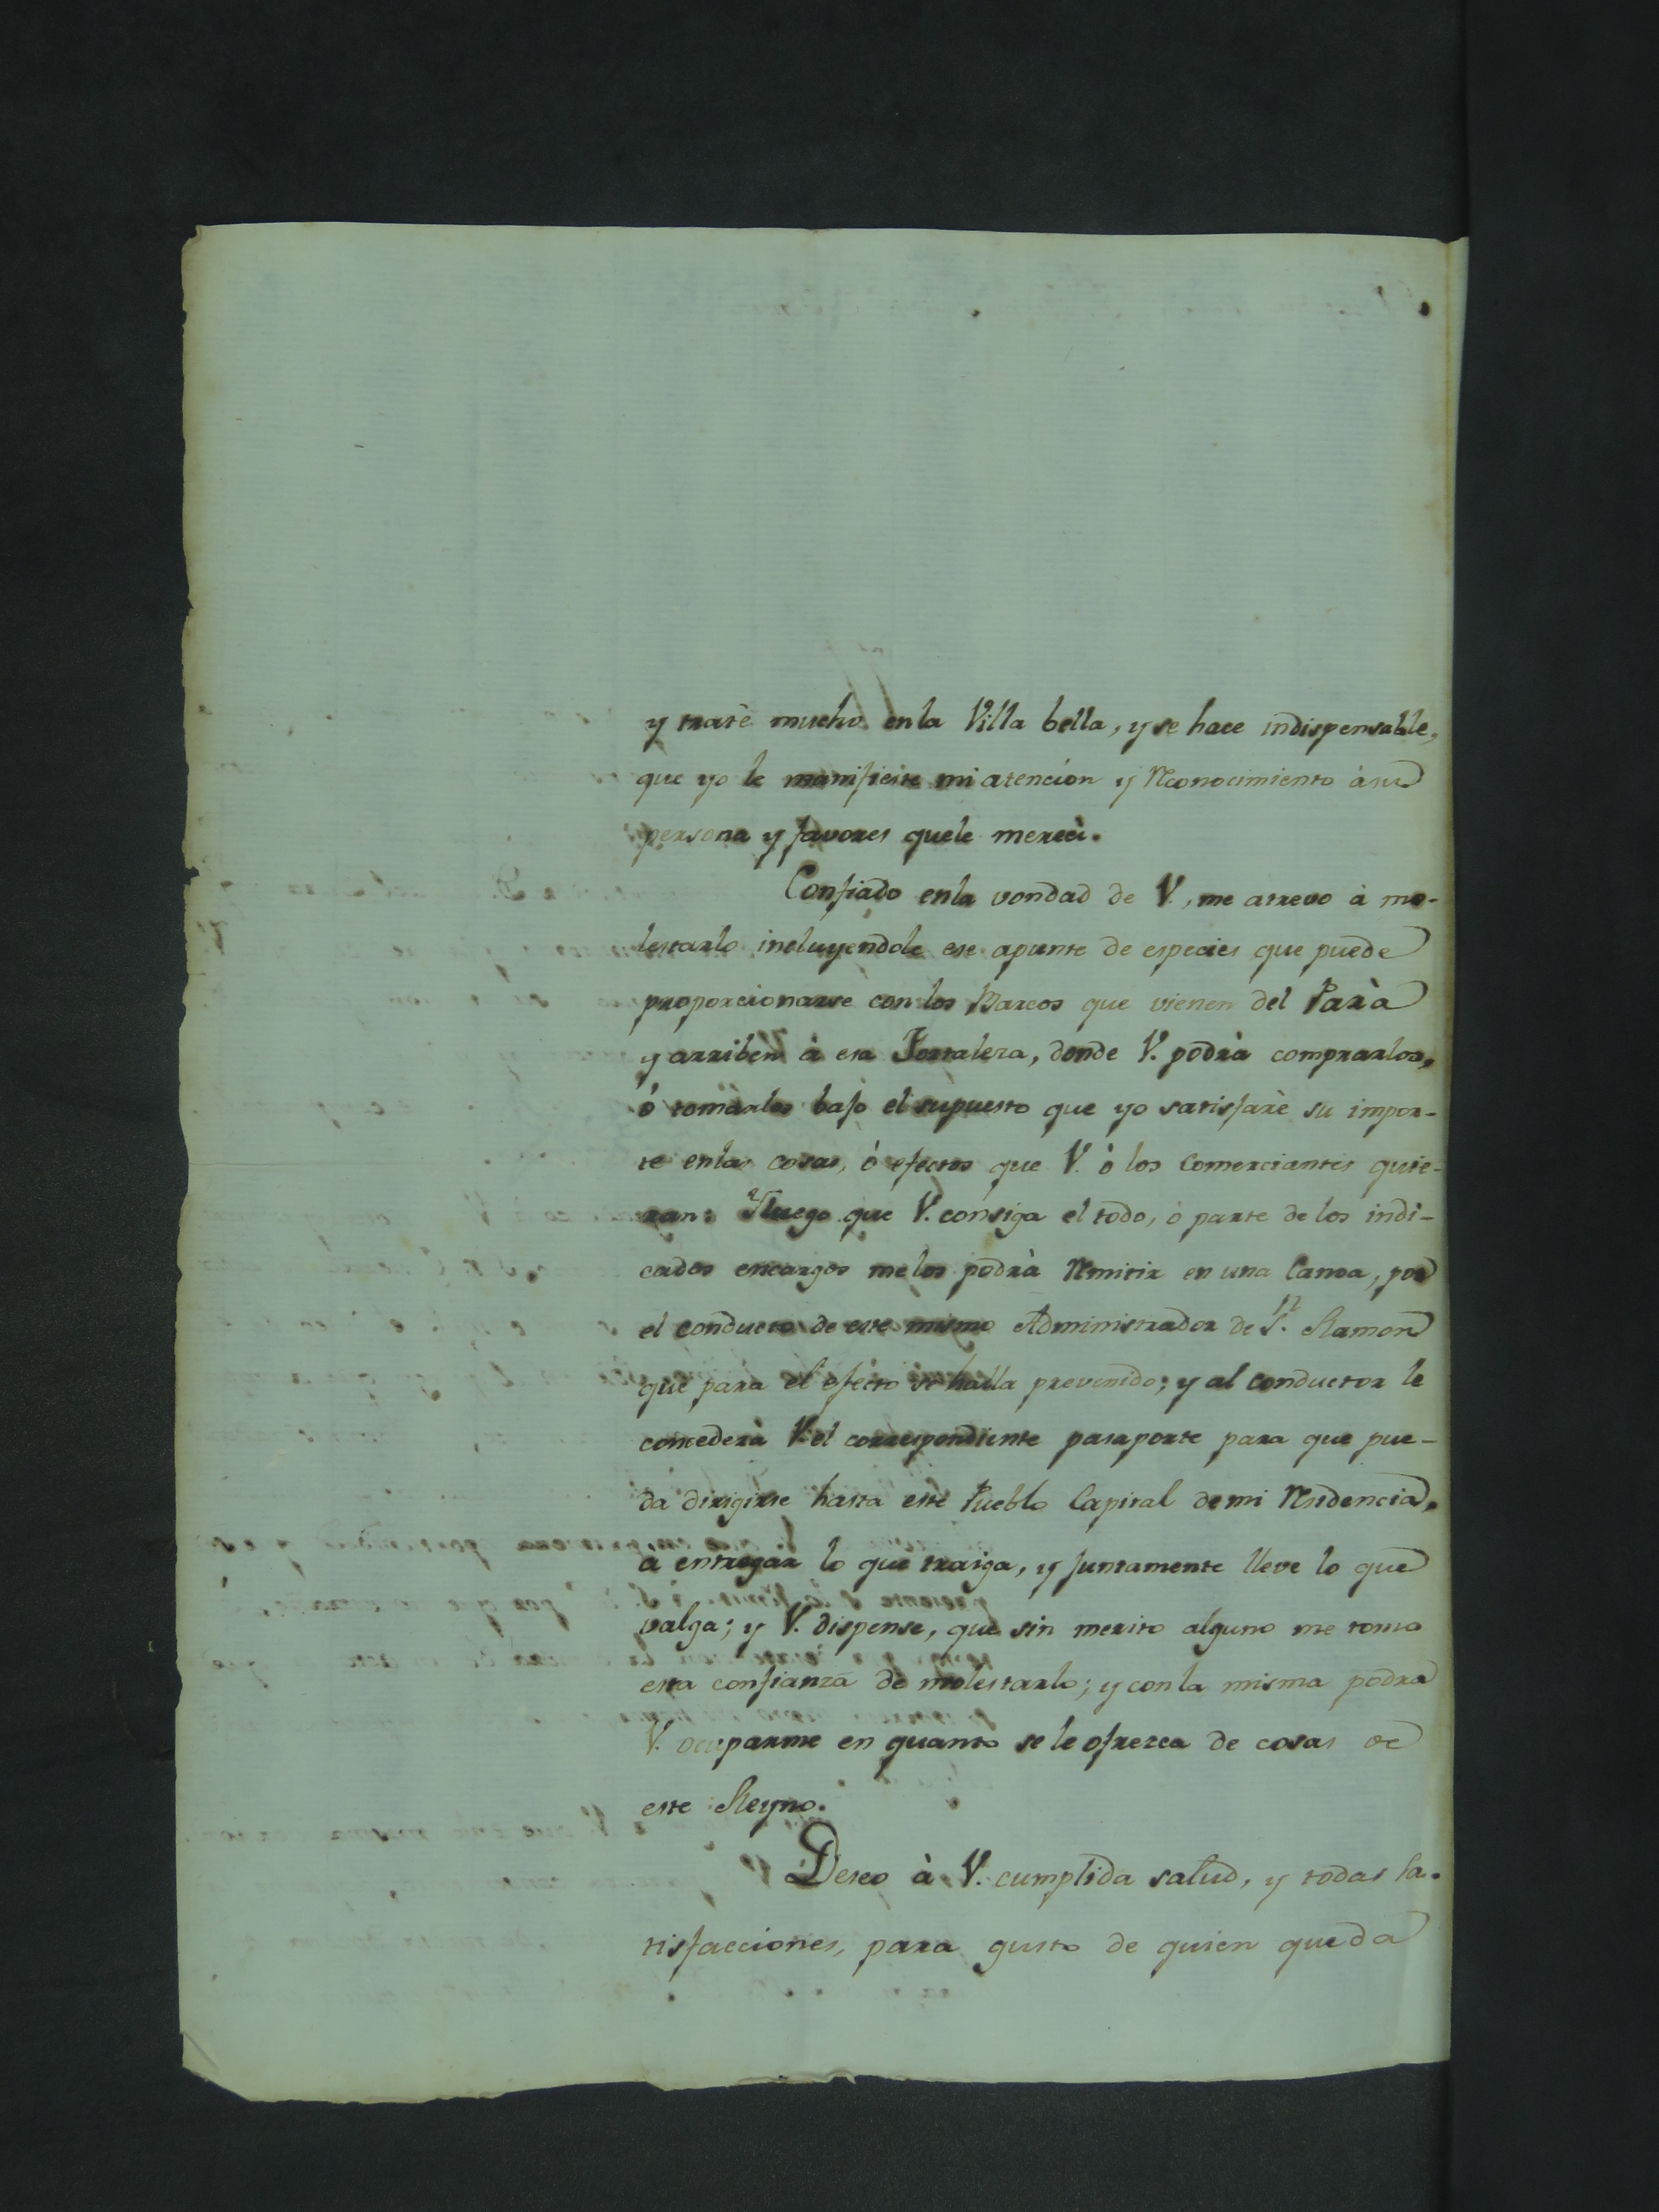 y traté mucho en la Villa bella, y se hace indispensable,
que yo le manifieste mi atencion y Reconocimiento à su
persona y favores quele mereci.
Confiado enla vondad de V., me atrevo à mo-
lestarlo incluyendole ese apunte de especies que puede
proporcionarse con los Barcos que vienen del Parà
y arriben à esa Fortaleza, donde V. podrà comprarlos,
ó tomarlos bajo el supuesto que yo satisfarè su impor-
te enlas cosas, ó efectos que V. ò los Comerciantes quie-
ran: Y luego que V. consiga el todo, ò parte de los indi-
cados encargos melos podrà Remitir en una Canoa, por
el conducto de este mismo Administrador de Sn. Ramon
que para el efecto se halla prevenido; y al conductor le
concederà V. el correspondiente pasaporte para que pue-
da dirigirse hasta este Pueblo Capital demi Residencia,
a entregar lo que traiga, y juntamente lleve lo que
valga; y V. dispense, que sin merito alguno me tomo
esta confianza de molestarlo; y conla misma podra
V. ocuparme en quanto se le ofrezca de cosas de
este Reyno.
Deseo à V. cumplida salud, y todas sa-
tisfacciones, para gusto de quien queda